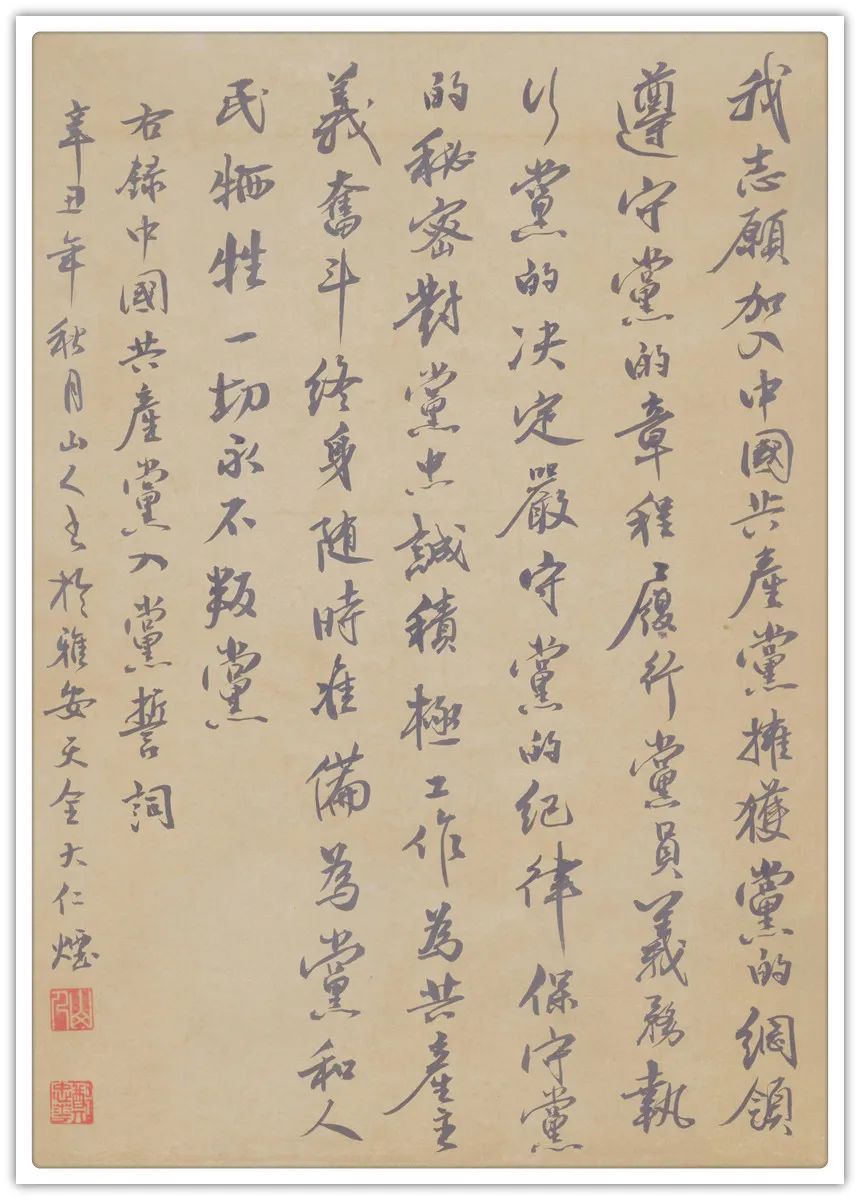 我志願加入中國共產黨擁獲黨的綱領
遵守黨的章程履行黨員義務執
行黨的决定嚴守黨的紀律保守黨
的秘密對黨忠誠積極工作為共產主
義奮斗終身随時准備為黨和人
民牺牲一切永不叛黨
右録中國共產黨入黨誓詞
辛丑年秋月山人書於雅安天全大仁煙